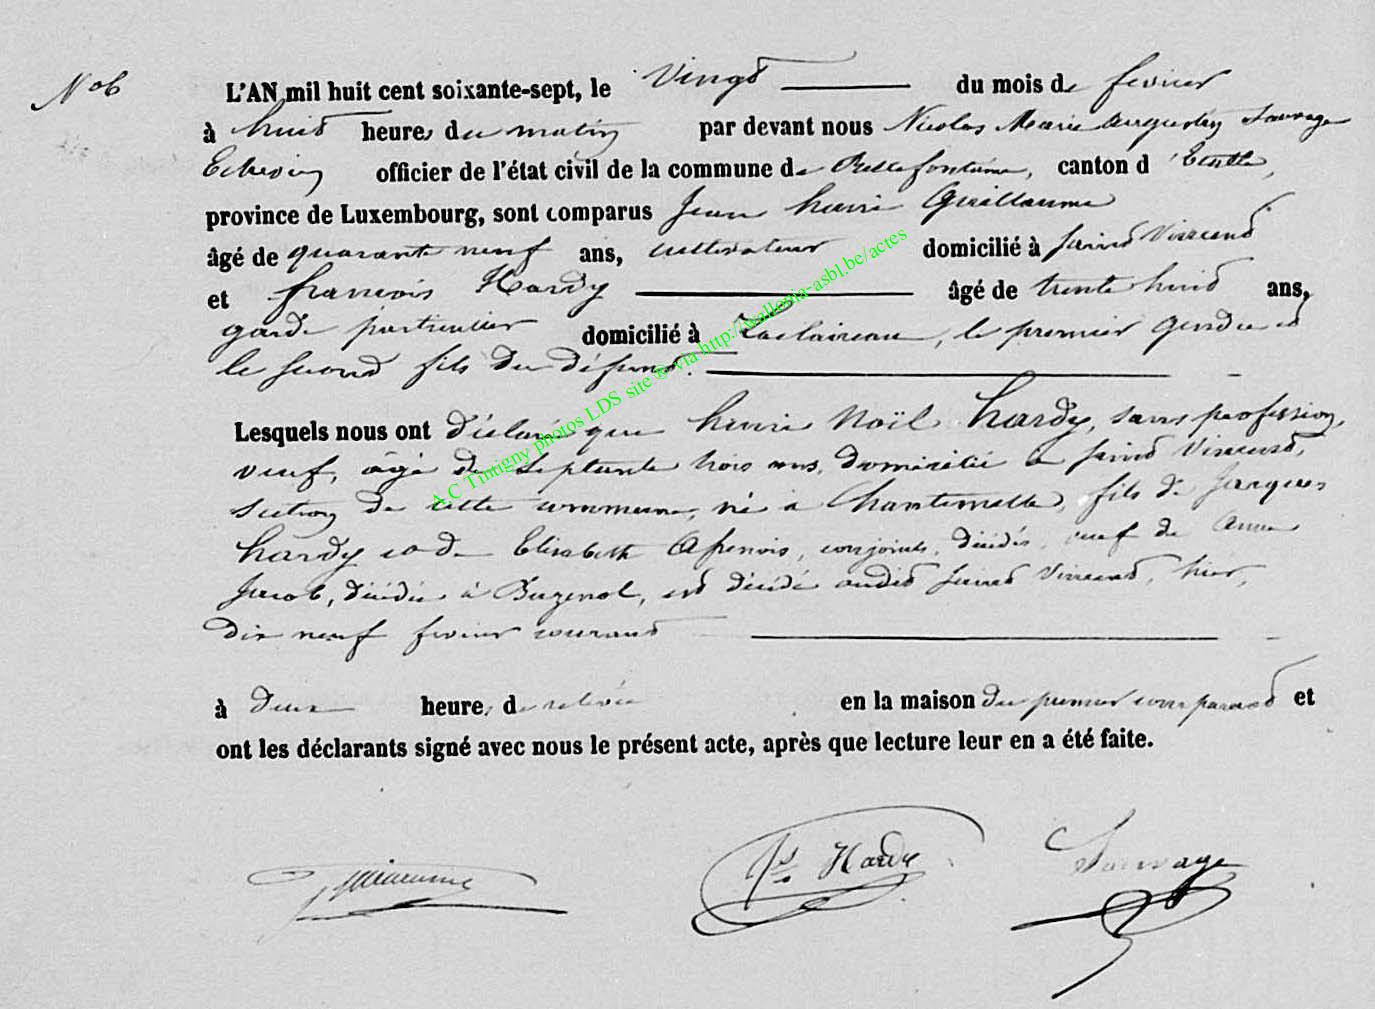 N° 6
L'AN mil huit cent soixante-sept, le Vingt du mois de fevrier
à huit heures du matin par devant nous Nicolas Marie Augustin Sauvage
Echevin officier de l'état civil de la commune de Bellefontaine, canton d'Etalle,
province de Luxembourg, sont comparus Jean henri Guillaume
âgé de quarante neuf ans, cultivateur domicilié à Saint Vincent
et françois Hardy âgé de trente huit ans,
garde particulier domicilié à Laclaireau, le premier gendre et
le second fils du défunt.
Lesquels nous ont déclaré que henri Noël hardy, sans profession,
veuf, âgé de septante trois ans, domicilié à Saint Vincent,
section de cette commune, né à Chantemelle, fils de Jacques
hardy et de Elisabeth Apenois, conjoints, décédés, veuf de Anne
Jacob, décédée à Buzenol, est décédé audit Saint Vincent, hier,
dix neuf fevrier courant
à deux heures de relevée en la maison du premier comparant et
ont les déclarants signé avec nous le présent acte, après que lecture leur en a été faite.
Guillaume Fs Hardy Sauvage
A.C Tintigny photos LDS site ® via http://wallonia-asbl.be/actes